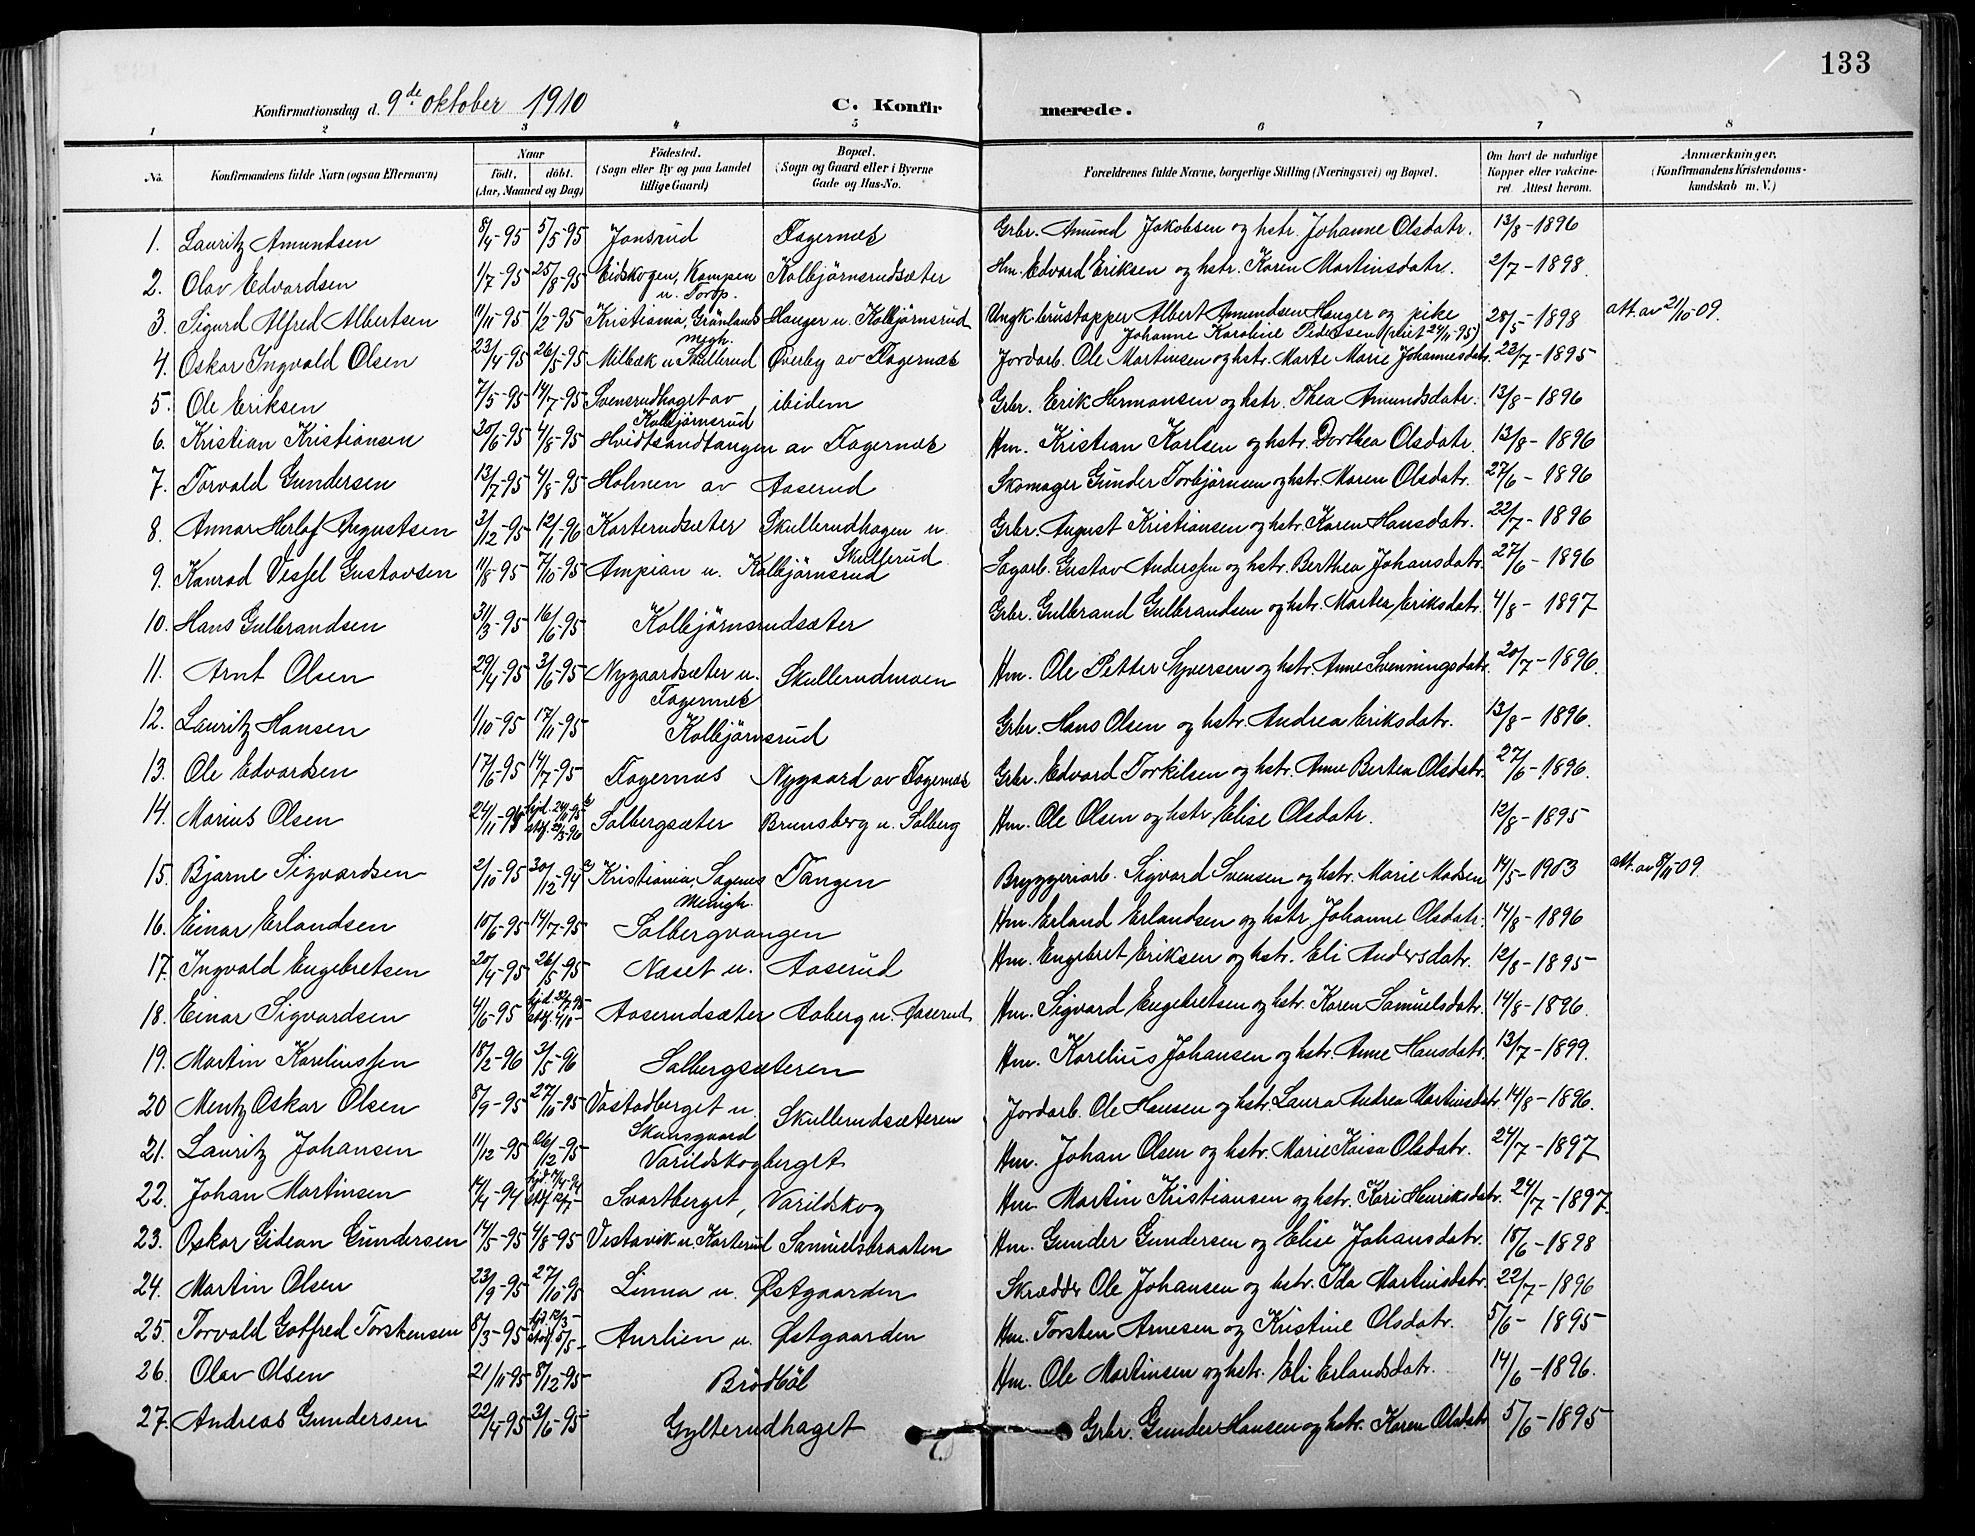 133
Konfirmationsdag d. 9de oktober 1910 C. Konfirmerede.
1 2 3 4 5 6 7 8
No. Konfirmandens fulde Navn (ogsaa Efternavn) Naar födt. döbt. (Aar, Maaned og Dag) Födested. (Sogn eller By og paa Landet tillige Gaard) Bopæl. (Sogn og Gaard eller i Byerne Gade og Hus-No. Forældrenes fulde Navne, borgerlige Stilling (Næringsvei) og Bopæl. Om havt de naturlige Kopper eller vaccineret. Attest herom. Anmærkninger. (Konfirmandens Kristendomskundskab m. V.)
1. Lauritz Amundsen 8/4-95 5/5-95 Jonsrud Fagernes Grbr. Amund Jakobsen og hstr. Johanne Olsdatr. 13/8-1896
2. Olav Edvardsen 1/7-95 25/8-95 Eidskogen, Kampen u. Torp. Kolbjørnsrudsæter Hm. Edvard Eriksen og hstr. Karen Martinsdatr. 2/7-1898.
3. Sigurd Alfred Albertsen 11/11-95 1/2-95 Kristiania, Grønlands megh. Hauger u. Kolbjørnsrud Ungk. brustapper Albert Amundsen Hauger og pike Johanne Karoline Pederssen (viet 24/11-95) 28/5-1898 att. av 21/10-09.
4. Oskar Ingvald Olsen 23/4-95 26/5-95 Milbæk u Skullerud Øverby av Fagernes Jordarb. Ole Martinsen og hstr. Marte Marie Johannesdatr. 23/7-1895
5. Ole Eriksen 7/5-95 14/7-95 Svensrudhaget av Kolbjørnsrud ibidem Grbr. Erik Hermansen og hstr. Thea Amundsdatr. 13/8-1896
6. Kristian Kristiansen 30/6-95 4/8-95 Hvidtsandtangen av Fagernes Hm. Kristian Karlsen og hstr. Dorthea Olsdatr. 13/8-1896
7. Torvald Gundersen 13/7-95 4/8-95 Holmen av Aaserud Skomager Gunder Torbjørnsen og hstr. Maren Olsdatr. 27/6-1896
8. Annar Herlof Augustsen 3/12-95 12/1-96 Karterudsæter Skullerudhagen u. Skullerud Grbr. August Kristiansen og hstr. Karen Hansdatr. 22/7-1896
9. Konrad Vessel Gustavsen 11/8-95 7/10-95 Ampian u. Kolbjørnsrud Sagarb. Gustav Anderssen og hstr. Berthea Johansdatr. 27/6-1896
10. Hans Gulbrandsen 31/3-95 16/6-95 Kolbjørnsrudsæter Grbr. Gulbrand Gulbrandsen og hstr. Martea Eriksdatr. 4/8-1897
11. Arnt Olsen 29/4-95 3/6-95 Nygaardsæter u. Fagernes Skullerudmoen Hm. Ole Petter Syversen og hstr. Anne Svenningsdatr. 20/7-1896.
12. Lauritz Hansen 1/10-95 17/11-95 Kolbjørnsrud Grbr. Hans Olsen og hstr. Andrea Eriksdatr. 13/8-1896.
13. Ole Edvardsen 17/6-95 14/7-95 Fagernes Nygaard av Fagernes Grbr. Edvard Torkilsen og hstr. Anne Bertea Olsdatr. 27/6-1896.
14. Marius Olsen 24/11-95 hjd. 24/11-95 stdf. 29/3-96 Solbergsæter Brunsberg u. Solberg Hm. Ole Olsen og hstr. Elise Olsdatr. 12/8-1895
15. Bjarne Sigvardsen 2/10-95 30/12-94 Kristiania, Sagenes Menigh. Tangen Bryggeriarb. Sigvard Svensen og hstr. Marie Madsen 14/5-1903 att. av 8/11 09.
16. Einar Erlandsen 10/6-95 14/7-95 Solbergvangen Hm. Erland Erlandsen og hstr. Johanne Olsdatr. 14/8-1896
17. Ingvald Engebretsen 20/4-95 26/5-95 Næset u. Aaserud Hm. Engebret Eriksen og hstr. Eli Andersdatr. 12/8-1895
18. Einar Sigvardsen 4/6-95 stdf. 4/10- Aaserudsæter Aaberg u. Aaserud Hm. Sigvard Engebretsen og hstr. Karen Samuelsdatr. 14/8-1896.
19. Martin Kareliussen 18/2-96 3/5-96 Solbergsæteren Hm. Karelius Johansen og hstr. Anne Hansdatr. 13/7-1899.
20 Mentz Oskar Olsen 8/9-95 27/10-95 Vastadberget u. Skansgaard Skullerudsæteren Jordarb. Ole Hansen og hstr. Laura Andrea Martinsdatr. 14/8-1896.
21. Lauritz Johansen 11/12-95 26/12-95 Varildskogberget Hm. Johan Olsen og hstr. Marie Kaisa Olsdatr. 24/7-1897
22. Johan Martinsen 14/4-94 hjd. 17/4-94 stdf. 12/7- Svartberget, Varildskog Hm. Martin Kristiansen og hstr. Kari Henriksdatr. 24/7-1897.
23. Oskar Gidean Gundersen 14/5-95 4/8-95 Vestavik u. Karterud Samuelsbraaten Hm. Gunder Gundersen og Elise Johansdatr. 18/6-1898
24. Martin Olsen 23/9-95 27/10-95 Linna u. Østgaarden Skrædder Ole Johansen og hstr. Ida Martinsdatr. 22/7-1896
25. Torvald Gotfred Torstensen 8/3-95 hjd. 12/3- stdf. 5/5- Aurlien u. Østgaarden Hm. Torsten Arnesen og Kristine Olsdatr. 5/6-1895
26. Olav Olsen 21/11-95 8/12-95 Brødbøl Hm. Ole Martinsen og hstr. Eli Erlandsdatr. 14/6-1896.
27. Andreas Gundersen 22/4-95 3/6-95 Gylterudhaget Grbr. Gunder Hansen og hstr. Karen Olsdatr 5/6-1895